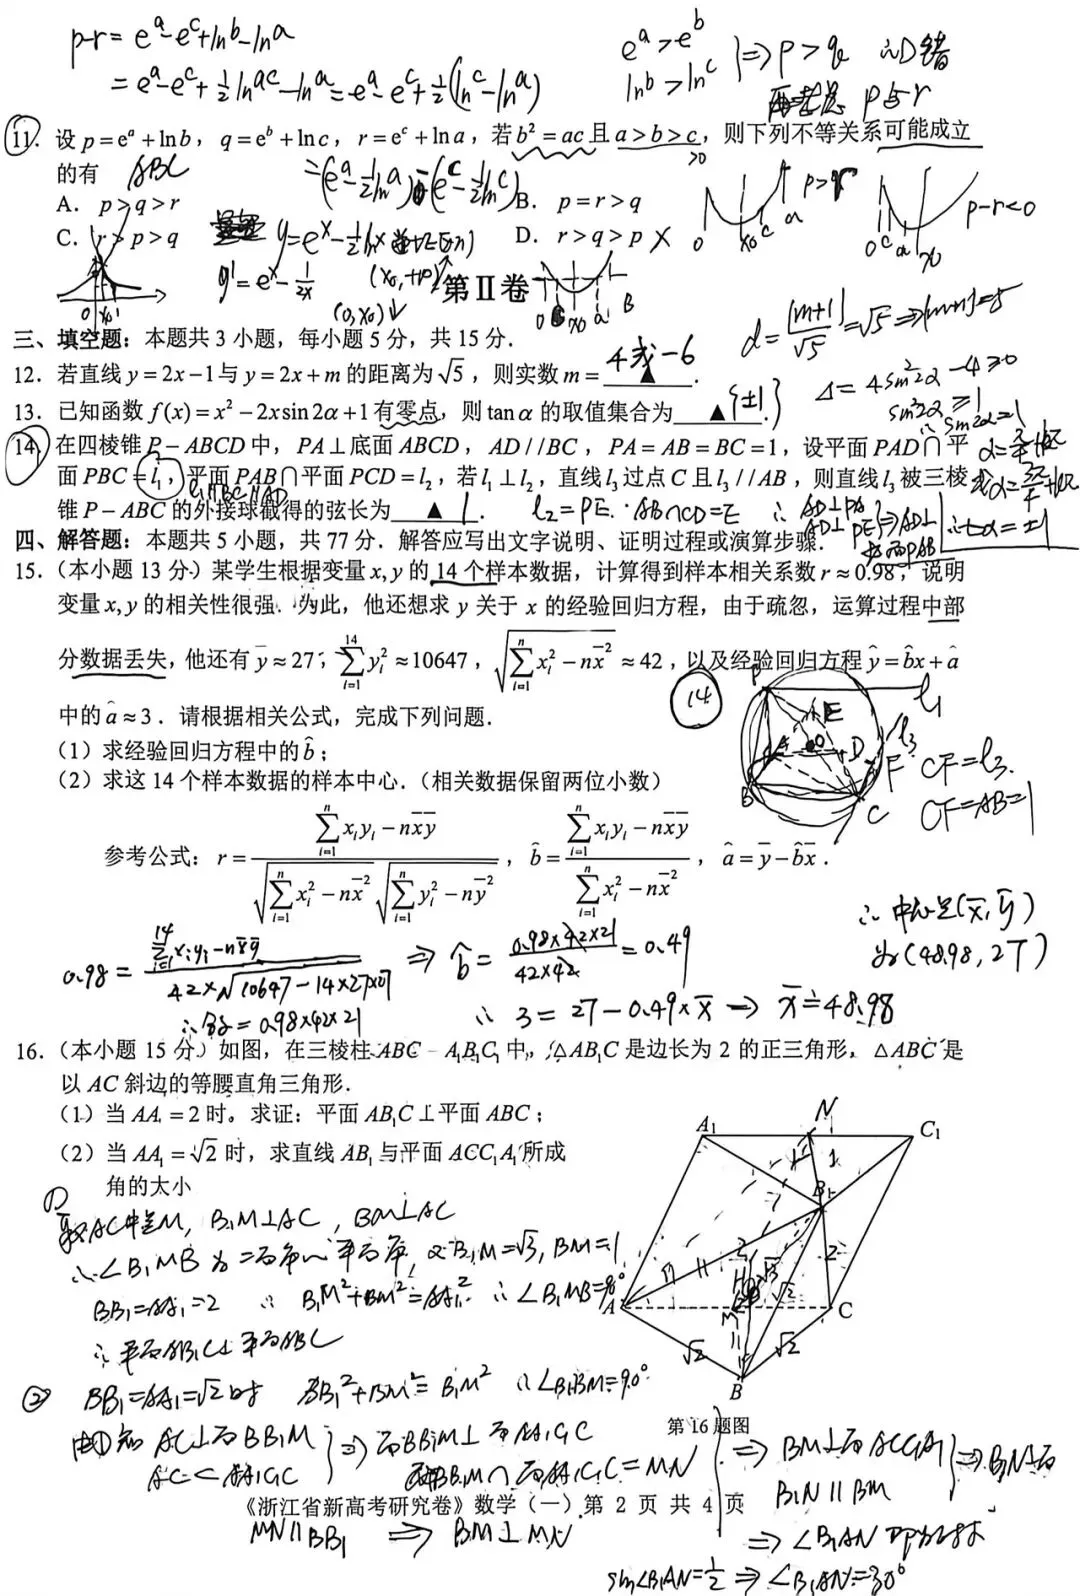 p-r = e^a - e^c + ln b - ln a
= e^a - e^c + 1/2 ln ac - ln a = e^a - e^c + 1/2(ln c - ln a)
e^a > e^b
ln b > ln c
⇒ p > q ∴ D错
p与r
11. 设 p = e^a + ln b, q = e^b + ln c, r = e^c + ln a, 若 b² = ac 且 a > b > c, 则下列不等关系可能成立
>0
的有 ABC
= (e^a - 1/2 ln a) - (e^c - 1/2 ln c)
A. p > q > r B. p = r > q
p > r
p - r < 0
C. r > p > q D. r > q > p ×
y = e^x - 1/2 ln x
y' = e^x - 1/2x
(x₀, +∞)↑
(0, x₀)↓
第Ⅱ卷
三、填空题：本题共 3 小题，每小题 5 分，共 15 分．
d = |m+1|/√5 = √5 ⇒ |m+1| = 5
12. 若直线 y = 2x - 1 与 y = 2x + m 的距离为 √5，则实数 m = 4或-6 ▲ ．
13. 已知函数 f(x) = x² - 2x sin 2α + 1 有零点，则 tan α 的取值集合为 ▲ {±1} ．
Δ = 4sin²2α - 4 ≥ 0
sin²2α ≥ 1
14. 在四棱锥 P - ABCD 中，PA ⊥ 底面 ABCD，AD // BC，PA = AB = BC = 1，设平面 PAD ∩ 平
面 PBC = l₁，平面 PAB ∩ 平面 PCD = l₂，若 l₁ ⊥ l₂，直线 l₃ 过点 C 且 l₃ // AB，则直线 l₃ 被三棱
l₁ // BC // AD
锥 P - ABC 的外接球截得的弦长为 ▲ 1 ．
l₂ = PE. AB ∩ CD = E
∴ AD⊥PA
AD⊥PE ⇒ AD⊥
面PAB
∴ tanα = ±1
四、解答题：本题共 5 小题，共 77 分．解答应写出文字说明、证明过程或演算步骤．
15.（本小题 13 分）某学生根据变量 x, y 的 14 个样本数据，计算得到样本相关系数 r ≈ 0.98，说明
变量 x, y 的相关性很强．为此，他还想求 y 关于 x 的经验回归方程，由于疏忽，运算过程中部
分数据丢失，他还有 ȳ ≈ 27，∑_{i=1}^{14} y_i² ≈ 10647，√(∑_{i=1}^{n} x_i² - nx̄²) ≈ 42，以及经验回归方程 ŷ = b̂x + â
中的 â ≈ 3．请根据相关公式，完成下列问题．
（1）求经验回归方程中的 b̂；
（2）求这 14 个样本数据的样本中心．（相关数据保留两位小数）
14
P
l₁
E
A
O
D
l₃
B
F
C
CF = l₃.
CF = AB = 1
参考公式：r = (∑_{i=1}^{n} x_i y_i - nx̄ȳ) / (√(∑_{i=1}^{n} x_i² - nx̄²) √(∑_{i=1}^{n} y_i² - nȳ²))，b̂ = (∑_{i=1}^{n} x_i y_i - nx̄ȳ) / (∑_{i=1}^{n} x_i² - nx̄²)，â = ȳ - b̂x̄．
0.98 = (∑_{i=1}^{14} x_i y_i - nx̄ȳ) / (42×√(10647 - 14×27×27)) ⇒ b̂ = (0.98×42×21)/(42×42) = 0.49
∴ 中心是(x̄, ȳ)
为(48.98, 27)
= 0.98×42×21
∴ 3 = 27 - 0.49×x̄ → x̄ ≐ 48.98
16.（本小题 15 分）如图，在三棱柱 ABC - A₁B₁C₁ 中，△AB₁C 是边长为 2 的正三角形，△ABC 是
以 AC 斜边的等腰直角三角形．
（1）当 AA₁ = 2 时。求证：平面 AB₁C ⊥ 平面 ABC；
（2）当 AA₁ = √2 时，求直线 AB₁ 与平面 ACC₁A₁ 所成
角的大小
A₁
N
C₁
B₁
1
2
√3
√2
A
M
H
C
√2
√2
B
第 16 题图
① 取AC中点M, B₁M⊥AC, BM⊥AC
∴∠B₁MB 为二面角的平面角, 又B₁M = √3, BM = 1
BB₁ = AA₁ = 2 ∴ B₁M² + BM² = AA₁² ∴ ∠B₁MB = 90°
∴ 平面AB₁C⊥平面ABC
② BB₁ = AA₁ = √2 时 BB₁² + BM² = B₁M² ∴∠B₁BM = 90°
由①知 AC⊥面BB₁M
AC ⊂ AA₁C₁C
⇒ 面BB₁M⊥面AA₁C₁C
面BB₁M ∩ 面AA₁C₁C = MN
MN // BB₁ ⇒ BM⊥MN
⇒ BM⊥面ACC₁A₁
B₁N // BM
⇒ B₁N⊥面
⇒ ∠B₁AN 即为所求
sin∠B₁AN = 1/2 ⇒ ∠B₁AN = 30°
《浙江省新高考研究卷》数学（一）第 2 页 共 4 页